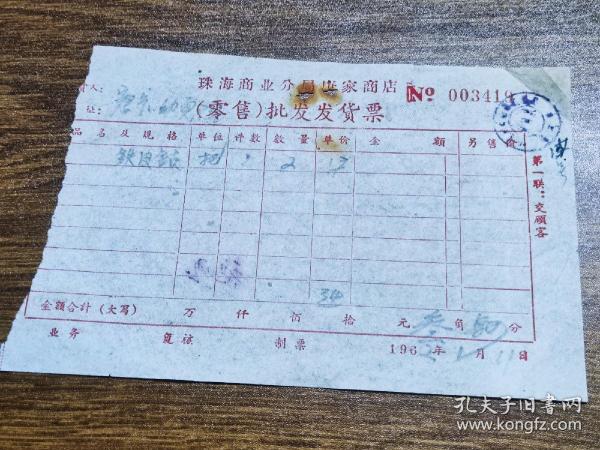 珠海商业分局唐家商店 No 003419
(零售)批发发货票
人:
址:
品名及规格 单位 件数 数量 单价 金额 另售价
把 2
第一联:交顾客
金额合计(大写) 万 仟 佰 拾 元 叁角 分
业务 复核 制票 196 年 1月11日
孔夫子旧书网
www.kongfz.com